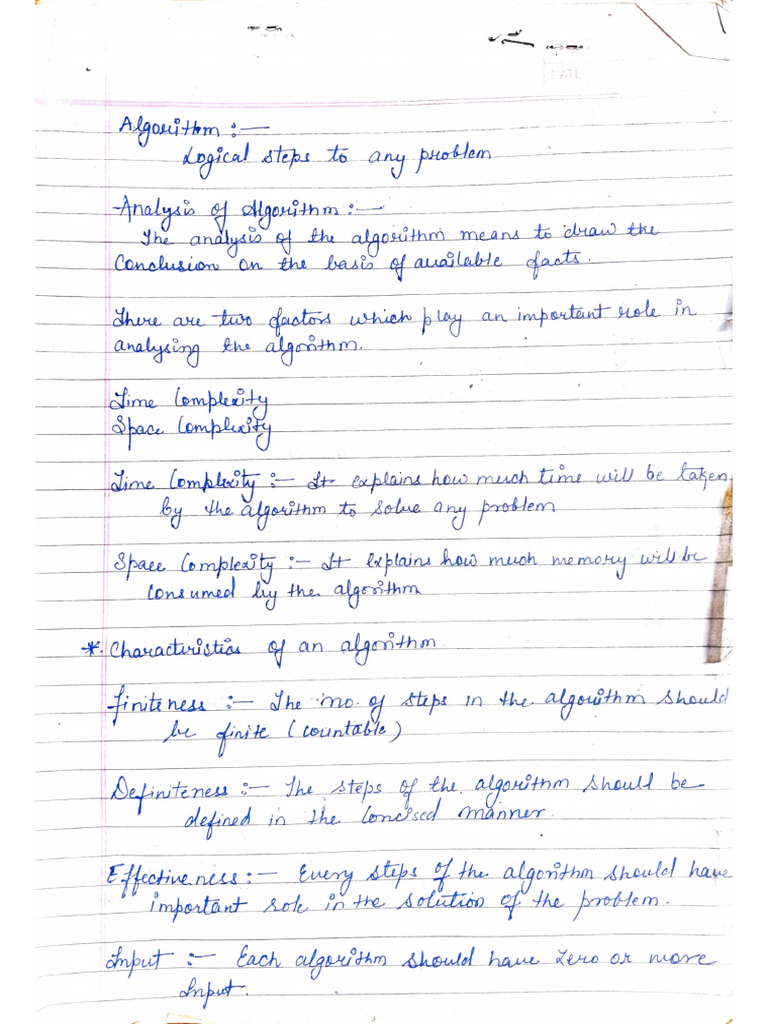 Algorithm :—
Logical steps to any problem
Analysis of Algorithm :—
The analysis of the algorithm means to draw the
Conclusion on the basis of available facts.
There are two factors which play an important role in
analysing the algorithm.
Time Complexity
Space Complexity
Time Complexity :— It explains how much time will be taken
by the algorithm to solve any problem
Space Complexity :— It explains how much memory will be
consumed by the algorithm
*. Characteristics of an algorithm
Finiteness :— The no. of steps in the algorithm should
be finite (countable)
Definiteness :— The steps of the algorithm should be
defined in the concised manner.
Effectiveness :— Every steps of the algorithm should have
important role in the solution of the problem.
Input :— Each algorithm should have zero or more
Input.